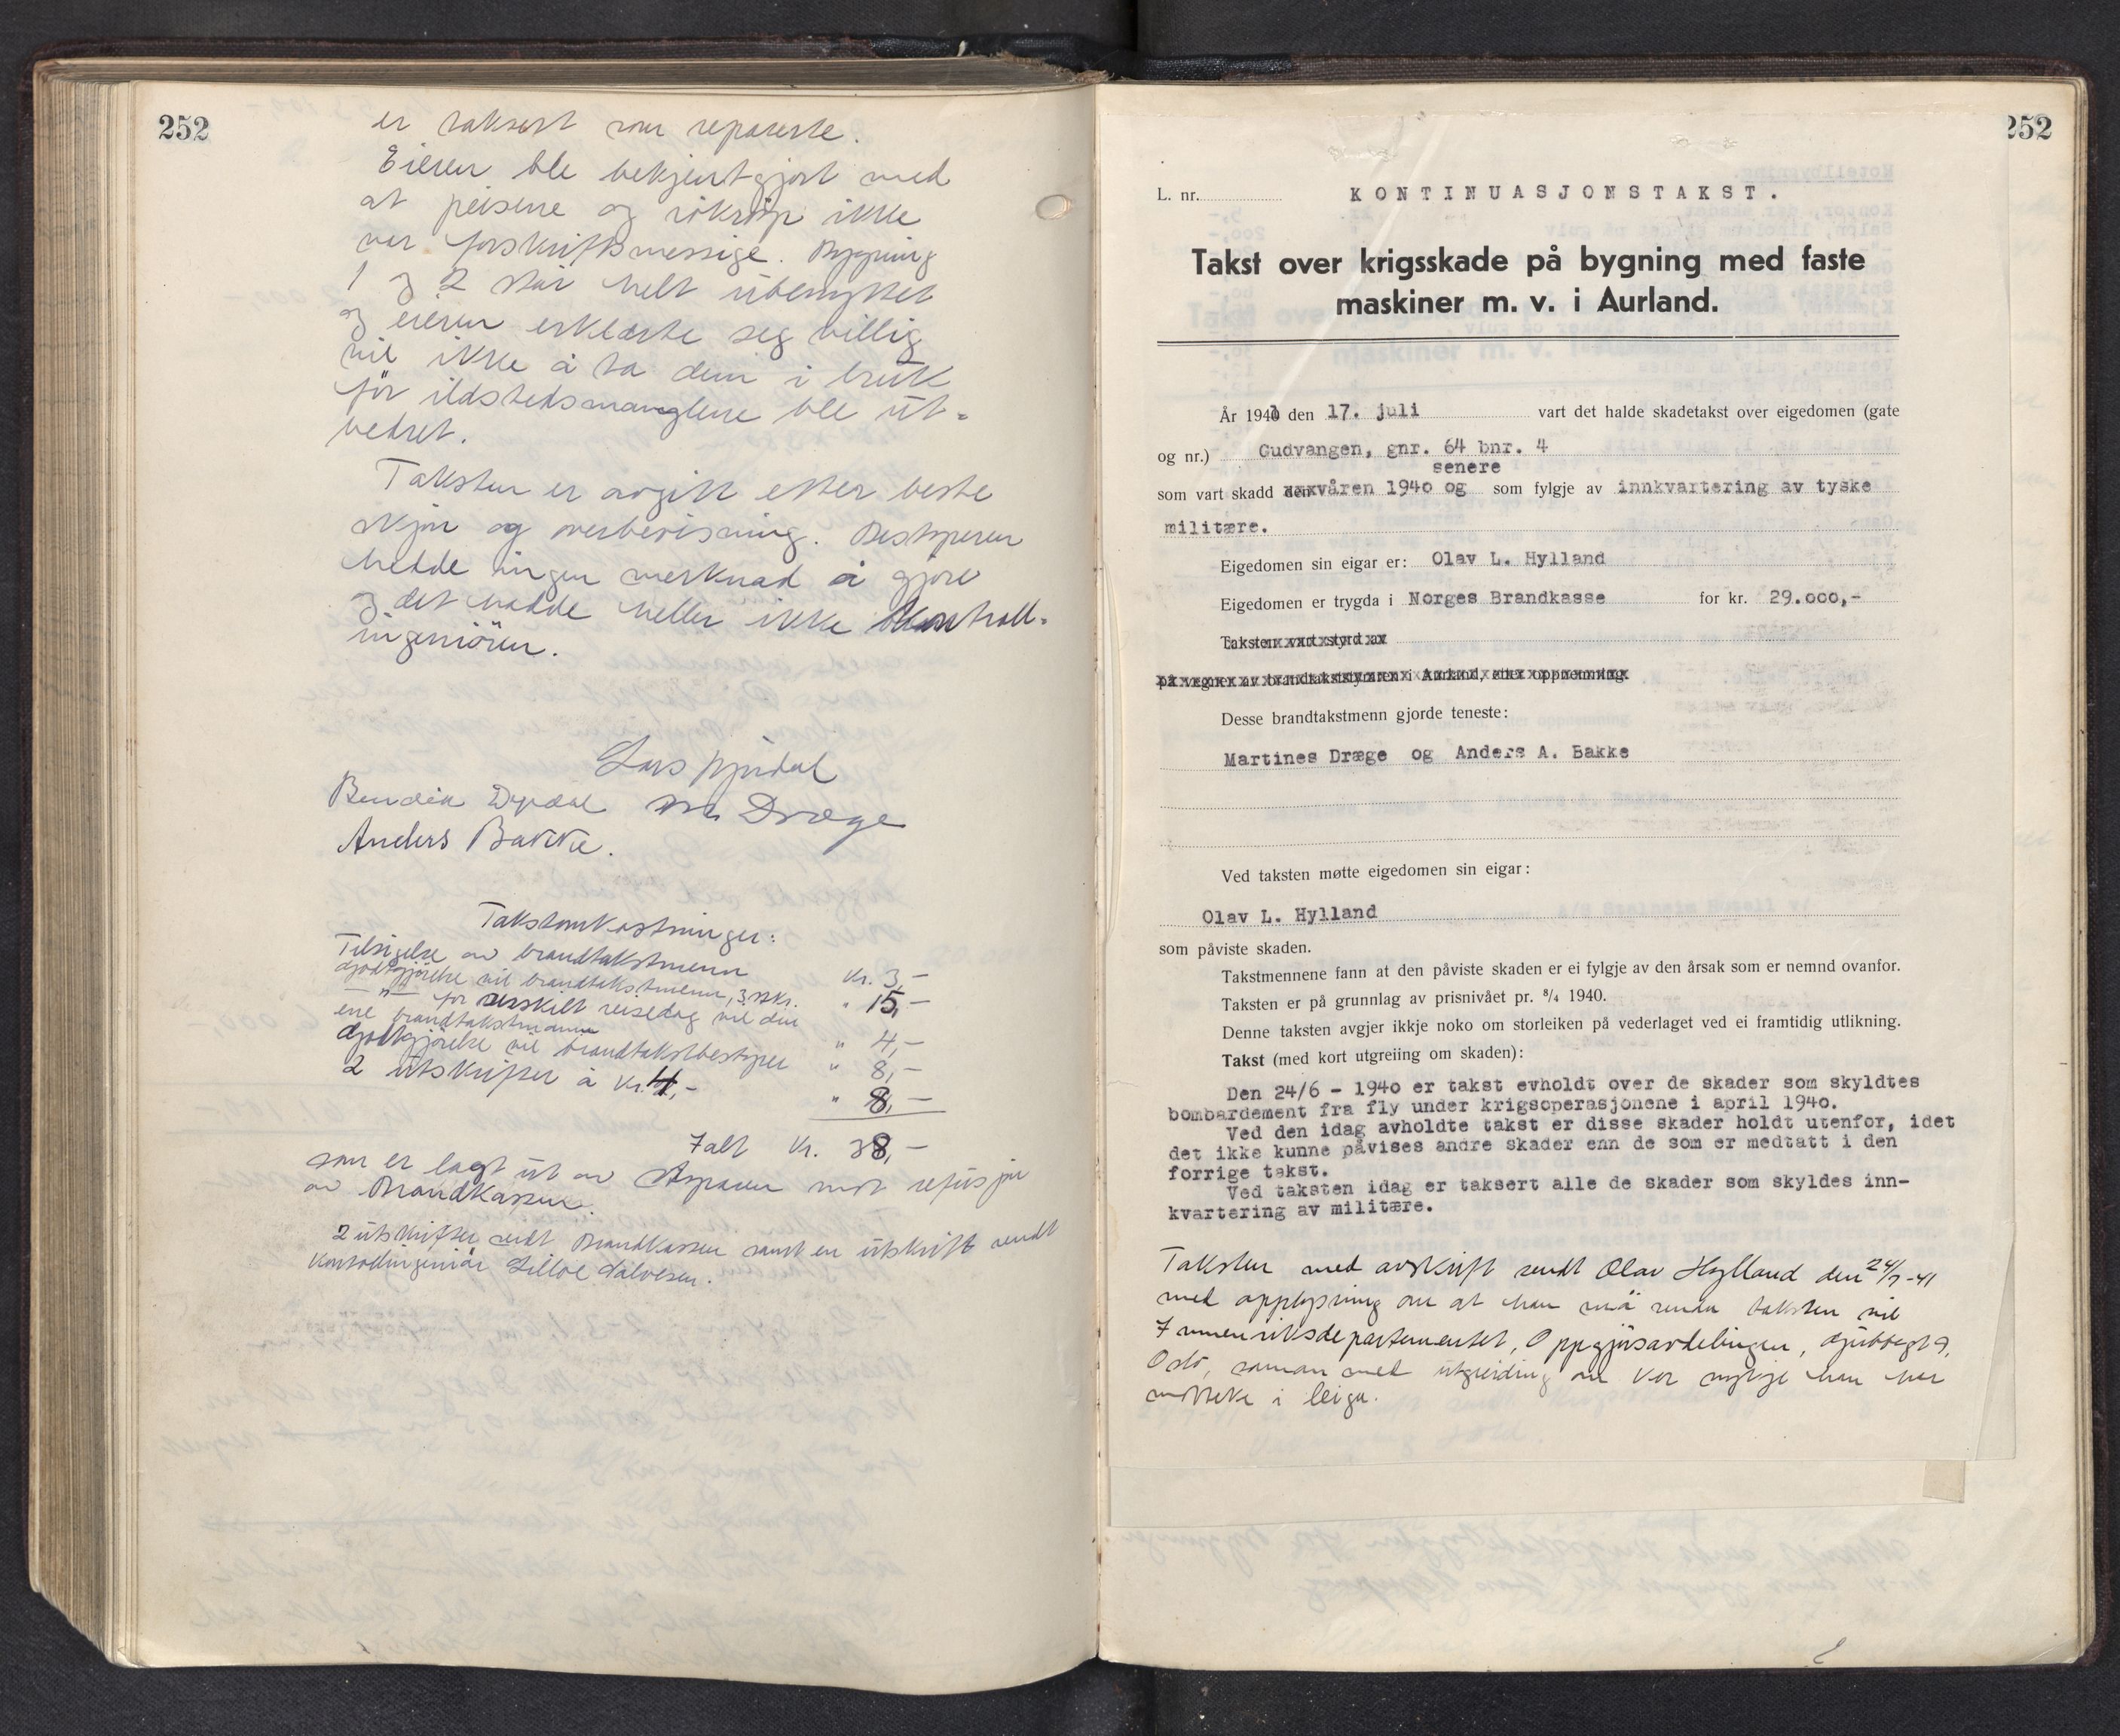 252
er taksert som reparerte.
Eieren ble bekjentgjort med
at peisene og rökrör ikke
var forskriftsmessige. Bygning
1 og 2 står helt ubenyttet
og eieren erklærte seg villig
til ikke å ta dem i bruk
för ildstedsmanglene ble ut-
bedret.
Taksten er avgitt etter beste
skjön og overbevisning. Bestyreren
hadde ingen merknad å gjöre
og det hadde heller ikke kontroll-
ingeniören.
Lars
Bendik Dyrdal M Dræge
Anders Bakke.
Takstomkostninger:
Tilsigelse av brandtakstmenn kr. 3,-
Godtgjörelse til brandtakstmenn, 3 stkr. " 15,-
— " — for særskilt reisedag til den
ene brandtakstmann " 4,-
Godtgjörelse til brandtakstbestyrer " 8,-
2 utskrifter à kr. 4,- " 8,-
Ialt kr. 38,-
som er lagt ut av mot refusjon
av Brandkassen.
2 utskrifter sendt Brandkassen samt en utskrift sendt
kontrollingeniör Lilloe Salvesen.
252
L. nr. KONTINUASJONSTAKST.
Takst over krigsskade på bygning med faste
maskiner m. v. i Aurland.
År 1941 den 17. juli vart det halde skadetakst over eigedomen (gate
og nr.) Gudvangen, gnr. 64 bnr. 4
senere
som vart skadd den våren 1940 og som fylgje av innkvartering av tyske
militære.
Eigedomen sin eigar er: Olav L. Hylland
Eigedomen er trygda i Norges Brandkasse for kr. 29.000,-
Taksten vart styrd av
på vegner av brandtakststyraren i Aurland, etter oppnemning.
Desse brandtakstmenn gjorde teneste:
Martines Dræge og Anders A. Bakke
Ved taksten møtte eigedomen sin eigar:
Olav L. Hylland
som påviste skaden.
Takstmennene fann at den påviste skaden er ei fylgje av den årsak som er nemnd ovanfor.
Taksten er på grunnlag av prisnivået pr. 8/4 1940.
Denne taksten avgjer ikkje noko om storleiken på vederlaget ved ei framtidig utlikning.
Takst (med kort utgreiing om skaden):
Den 24/6 - 1940 er takst evholdt over de skader som skyldtes
bombardement fra fly under krigsoperasjonene i april 1940.
Ved den idag avholdte takst er disse skader holdt utenfor, idet
det ikke kunne påvises andre skader enn de som er medtatt i den
forrige takst.
Ved taksten idag er taksert alle de skader som skyldes inn-
kvartering av militære.
Taksten med avskrift sendt Olav Hylland den 24/7-41
med opplysning om at han må senda taksten til
Innenriksdepartementet, Oppgjörsavdelingen, 9,
Oslo, saman med utgreiding om kor mykje han har
motteke i leiga.